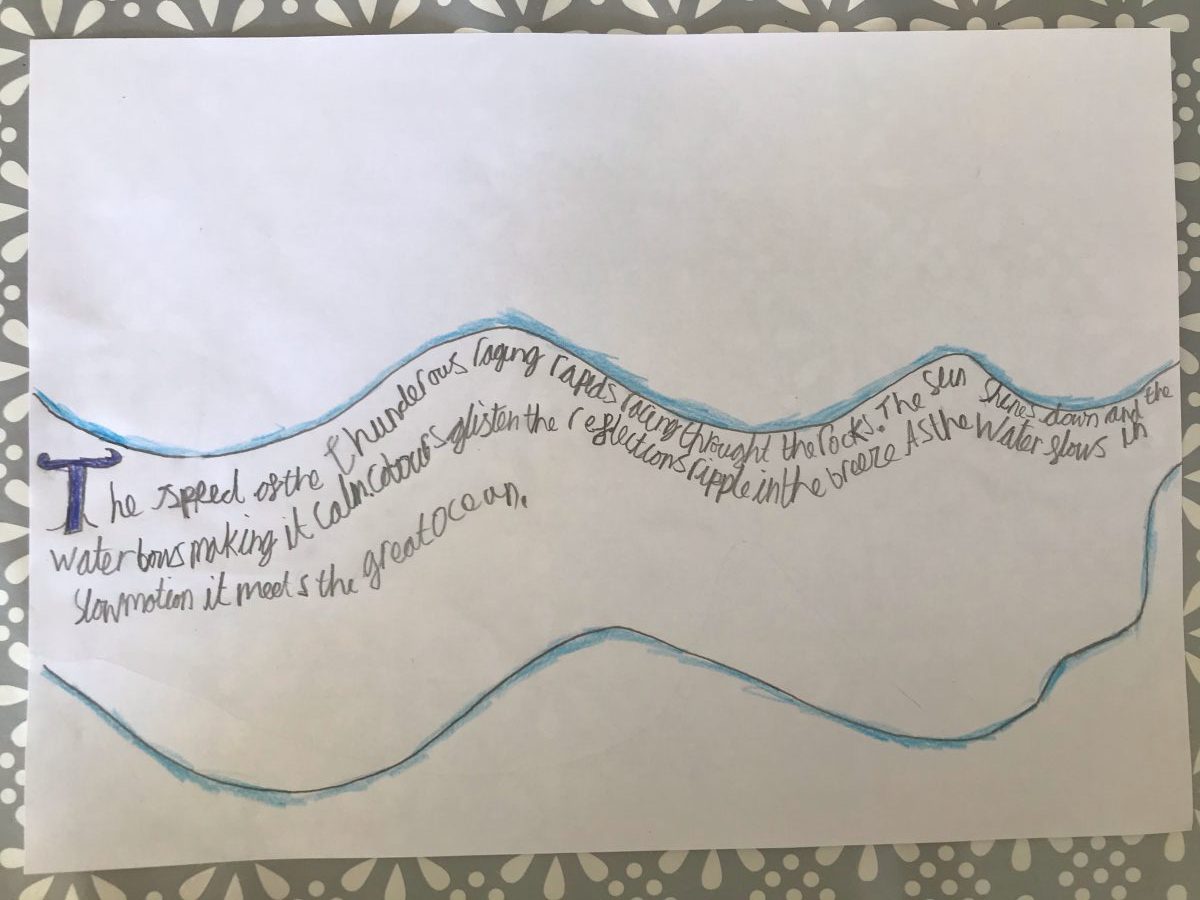 The speed of the thunderous raging rapids racing throught the rocks. The sun shines down and the
water bows making it calm. Colours glisten the reflections ripple in the breeze As the water slows in
slow motion it meets the great ocean.